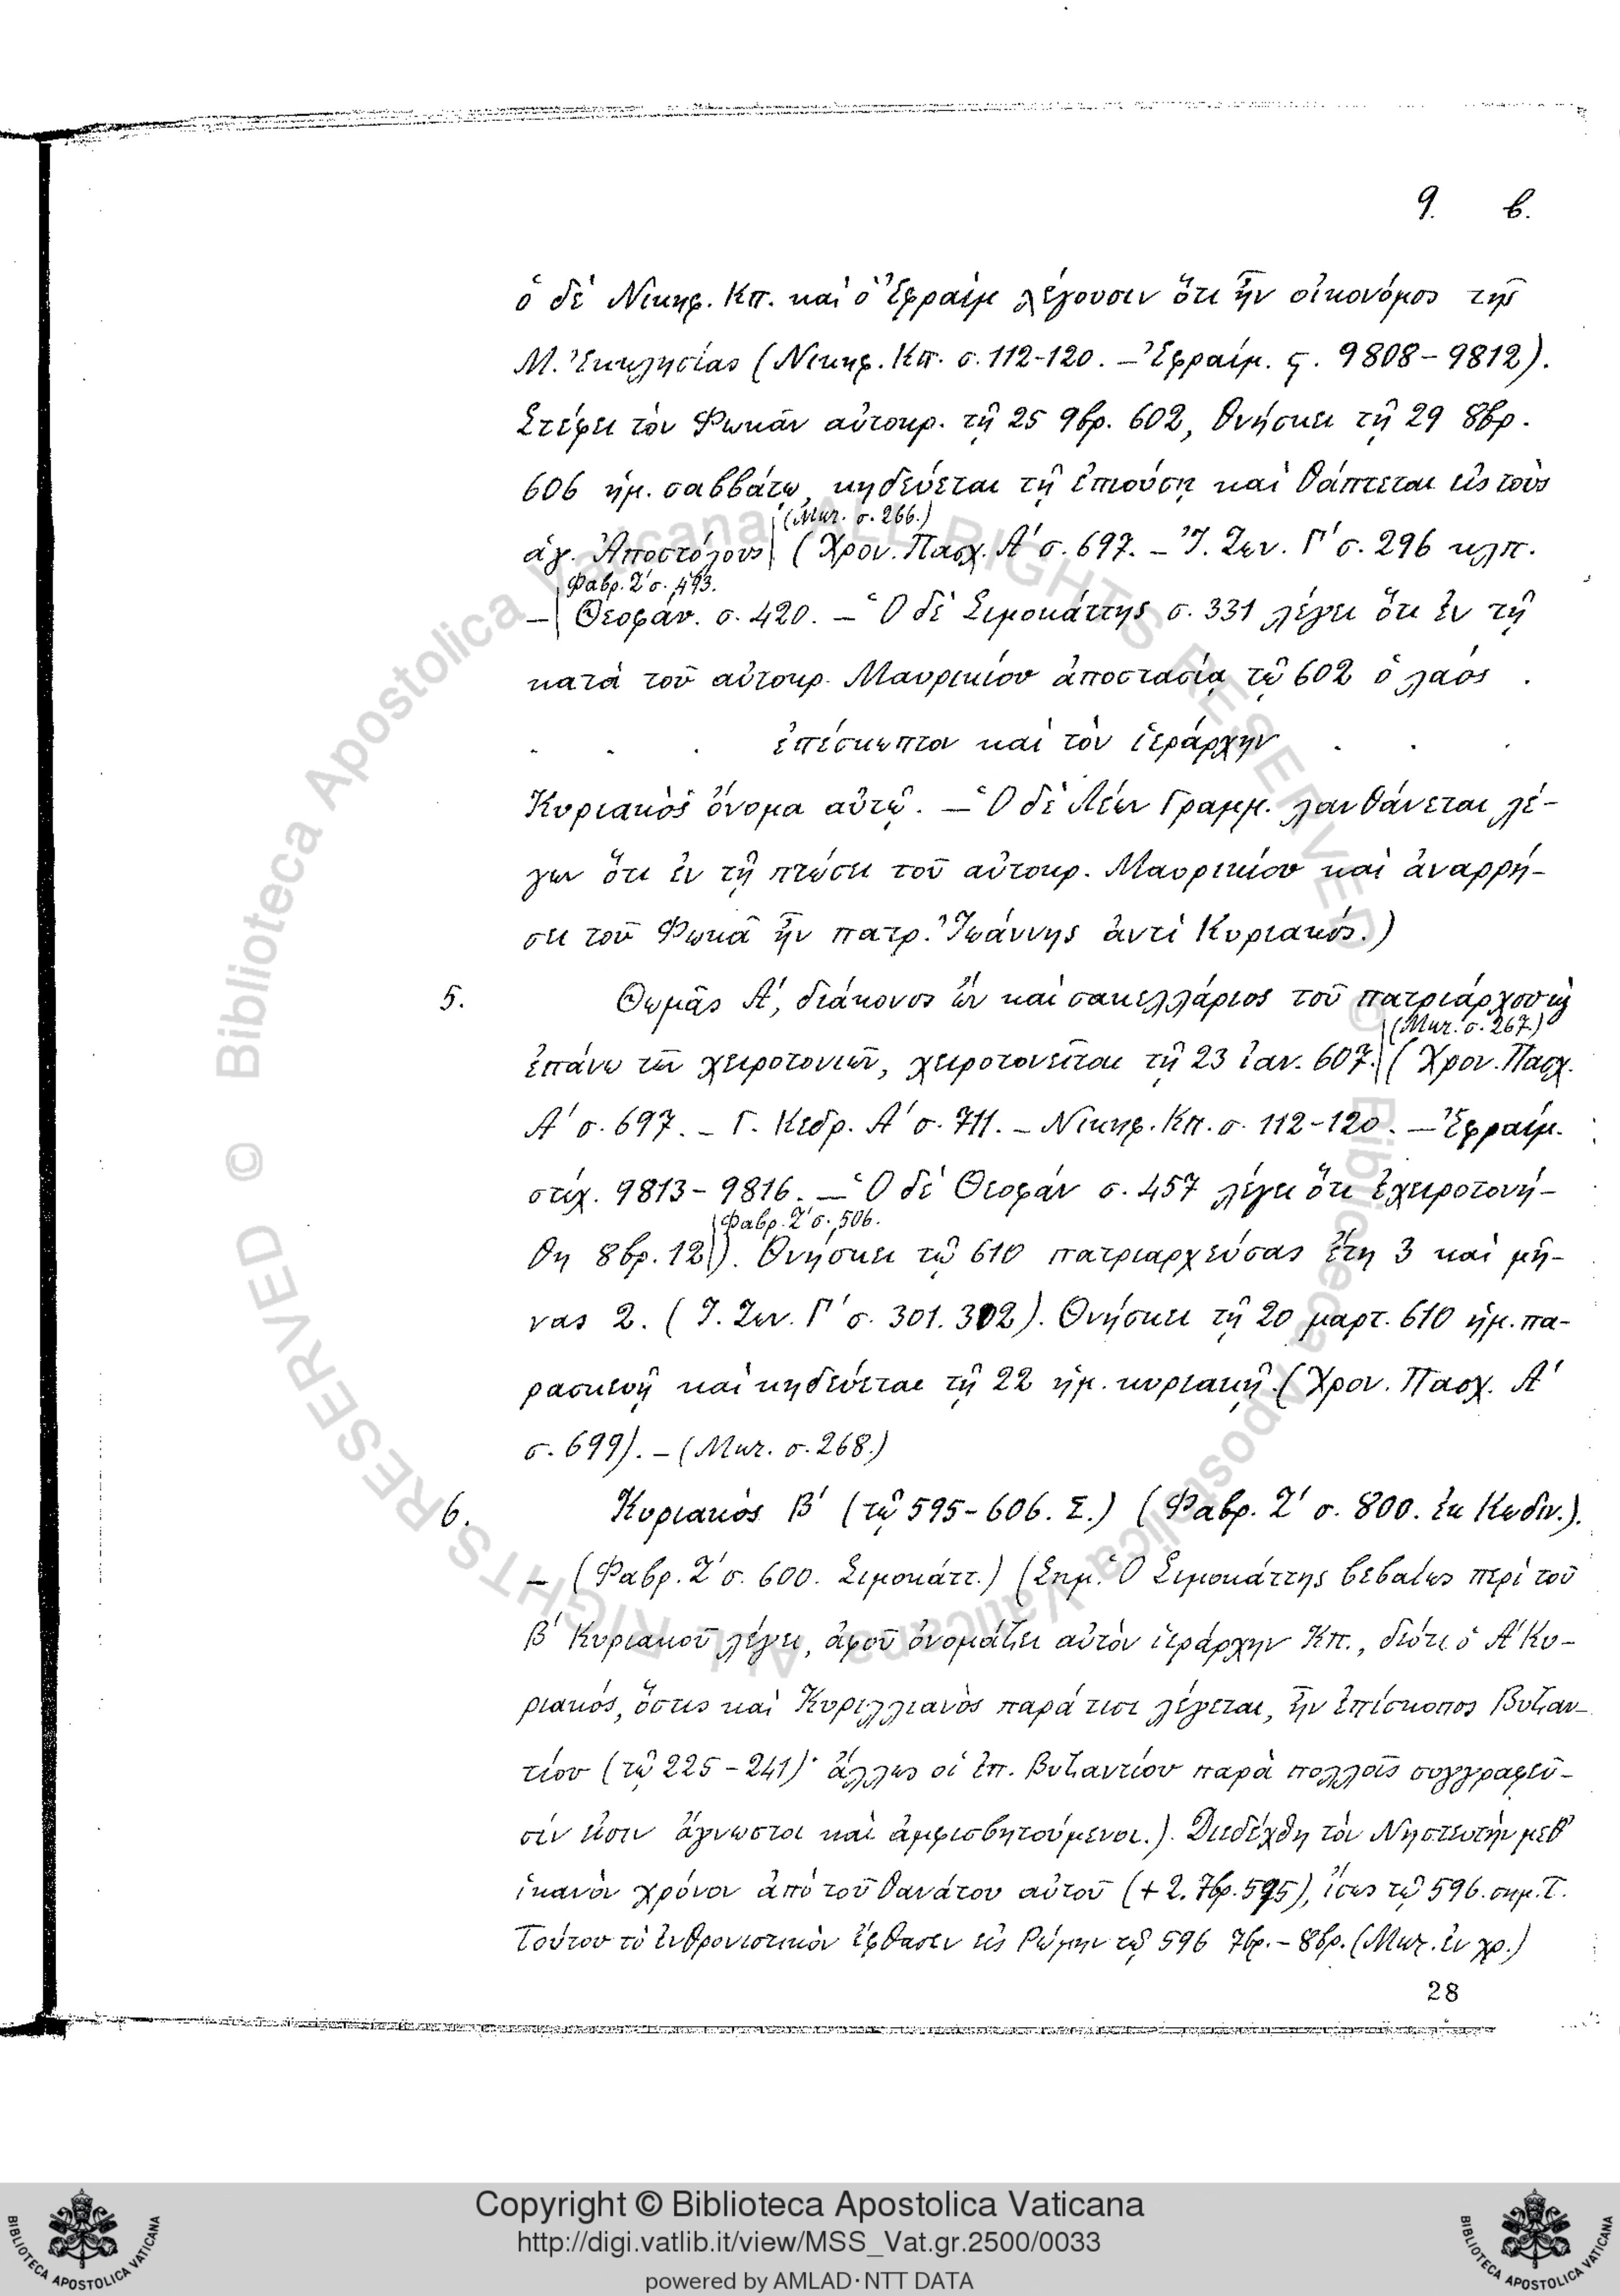 9. β.
ὁ δὲ Νικηφ. Κπ. καὶ ὁ Ἐφραὶμ λέγουσιν ὅτι ἦν οἰκονόμος τῆς
Μ. Ἐκκλησίας (Νικηφ. Κπ. σ. 112-120. – Ἐφραίμ. ς. 9808-9812).
Στέφει τὸν Φωκᾶν αὐτοκρ. τῇ 25 9βρ. 602, θνήσκει τῇ 29 8βρ.
606 ἡμ. σαββάτῳ, κηδεύεται τῇ ἐπιούσῃ καὶ θάπτεται εἰς τοὺς
(Μικ. σ. 266.)
ἁγ. Ἀποστόλους (Χρον. Πασχ. Α' σ. 697. – Ἰ. Ζων. Γ' σ. 296 κλπ.
Φαβρ. Ζ' σ. 493.
– Θεοφάν. σ. 420. – Ὁ δὲ Σιμοκάττης σ. 331 λέγει ὅτι ἐν τῇ
κατὰ τοῦ αὐτοκρ. Μαυρικίου ἀποστασίᾳ τῷ 602 ὁ λαός .
. . . ἐπέσκωπτον καὶ τὸν ἱεράρχην . . .
Κυριακὸς ὄνομα αὐτῷ. – Ὁ δὲ Λέων Γραμμ. λανθάνεται λέ-
γων ὅτι ἐν τῇ πτώσει τοῦ αὐτοκρ. Μαυρικίου καὶ ἀναρρή-
σει τοῦ Φωκᾶ ἦν πατρ. Ἰωάννης ἀντὶ Κυριακός.)
5. Θωμᾶς Α', διάκονος ὢν καὶ σακελλάριος τοῦ πατριάρχου καὶ
(Μικ. σ. 267.)
ἐπάνω τῶν χειροτονιῶν, χειροτονεῖται τῇ 23 ἰαν. 607. (Χρον. Πασχ.
Α' σ. 697. – Γ. Κεδρ. Α' σ. 711. – Νικηφ. Κπ. σ. 112-120. – Ἐφραίμ.
στίχ. 9813-9816. – Ὁ δὲ Θεοφάν σ. 457 λέγει ὅτι ἐχειροτονή-
Φαβρ. Ζ' σ. 506.
θη 8βρ. 12). Θνήσκει τῷ 610 πατριαρχεύσας ἔτη 3 καὶ μῆ-
νας 2. (Ἰ. Ζων. Γ' σ. 301. 302). Θνήσκει τῇ 20 μαρτ. 610 ἡμ. πα-
ρασκευῇ καὶ κηδεύεται τῇ 22 ἡμ. κυριακῇ. (Χρον. Πασχ. Α'
σ. 699). – (Μικ. σ. 268.)
6. Κυριακὸς Β' (τῷ 595-606. Σ.) (Φαβρ. Ζ' σ. 800. ἐκ Κωδίν.).
– (Φαβρ. Ζ' σ. 600. Σιμοκάττ.) (Σημ. Ὁ Σιμοκάττης βεβαίως περὶ τοῦ
Β' Κυριακοῦ λέγει, ἀφοῦ ὀνομάζει αὐτὸν ἱεράρχην Κπ., διότι ὁ Α' Κυ-
ριακός, ὅστις καὶ Κυριλλιανὸς παρά τισι λέγεται, ἦν ἐπίσκοπος Βυζαν-
τίου (τῷ 225-241)· ἄλλως οἱ ἐπ. Βυζαντίου παρὰ πολλοῖς συγγραφεῦ-
σίν εἰσιν ἄγνωστοι καὶ ἀμφισβητούμενοι.). Διεδέχθη τὸν Νηστευτὴν μεθ'
ἱκανὸν χρόνον ἀπὸ τοῦ θανάτου αὐτοῦ (+ 2. 7βρ. 595), ἴσως τῷ 596. σημ. Τ.
Τούτου τὸ ἐνθρονιστικὸν ἔφθασεν εἰς Ῥώμην τῷ 596 7βρ. – 8βρ. (Μικ. ἐν χρ.)
28
© Biblioteca Apostolica Vaticana ALL RIGHTS RESERVED
Copyright © Biblioteca Apostolica Vaticana
http://digi.vatlib.it/view/MSS_Vat.gr.2500/0033
powered by AMLAD·NTT DATA
BIBLIOTECA APOSTOLICA VATICANA
BIBLIOTECA APOSTOLICA VATICANA